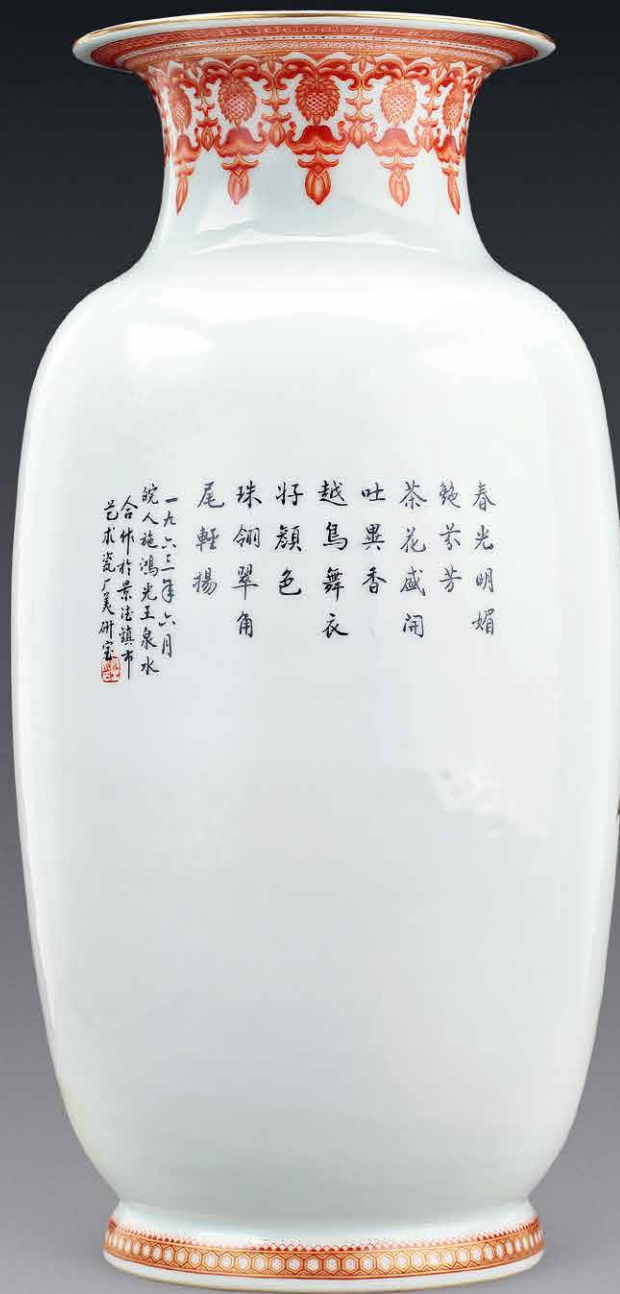 春光明媚
艳芬芳
茶花盛闹
吐異香
越鳥舞衣
好顔色
珠翎翠角
尾輕揚
一九六三年六月
皖人施鴻光王泉水
合作於景德鎮市
艺术瓷厂美研室